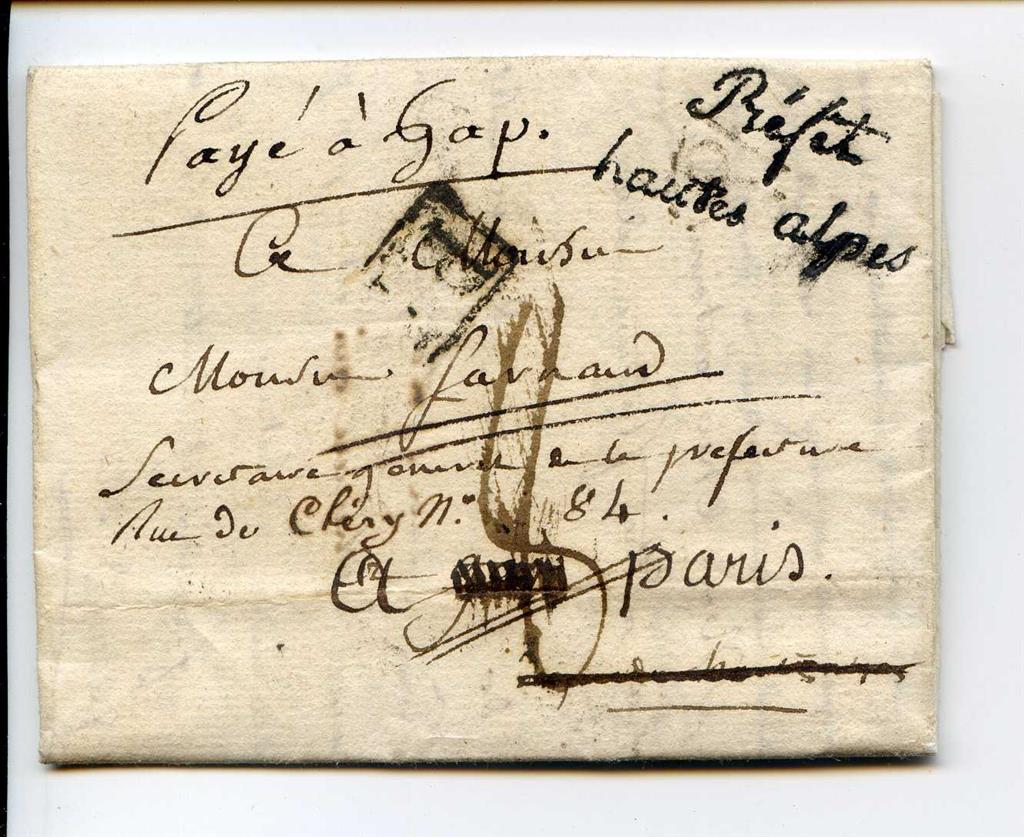 Payé à Gap.
Préfet
hautes alpes
A Monsieur
Monsieur farnaud
Secretaire general de la prefecture
Rue de Cléry N.° 84.
A paris.